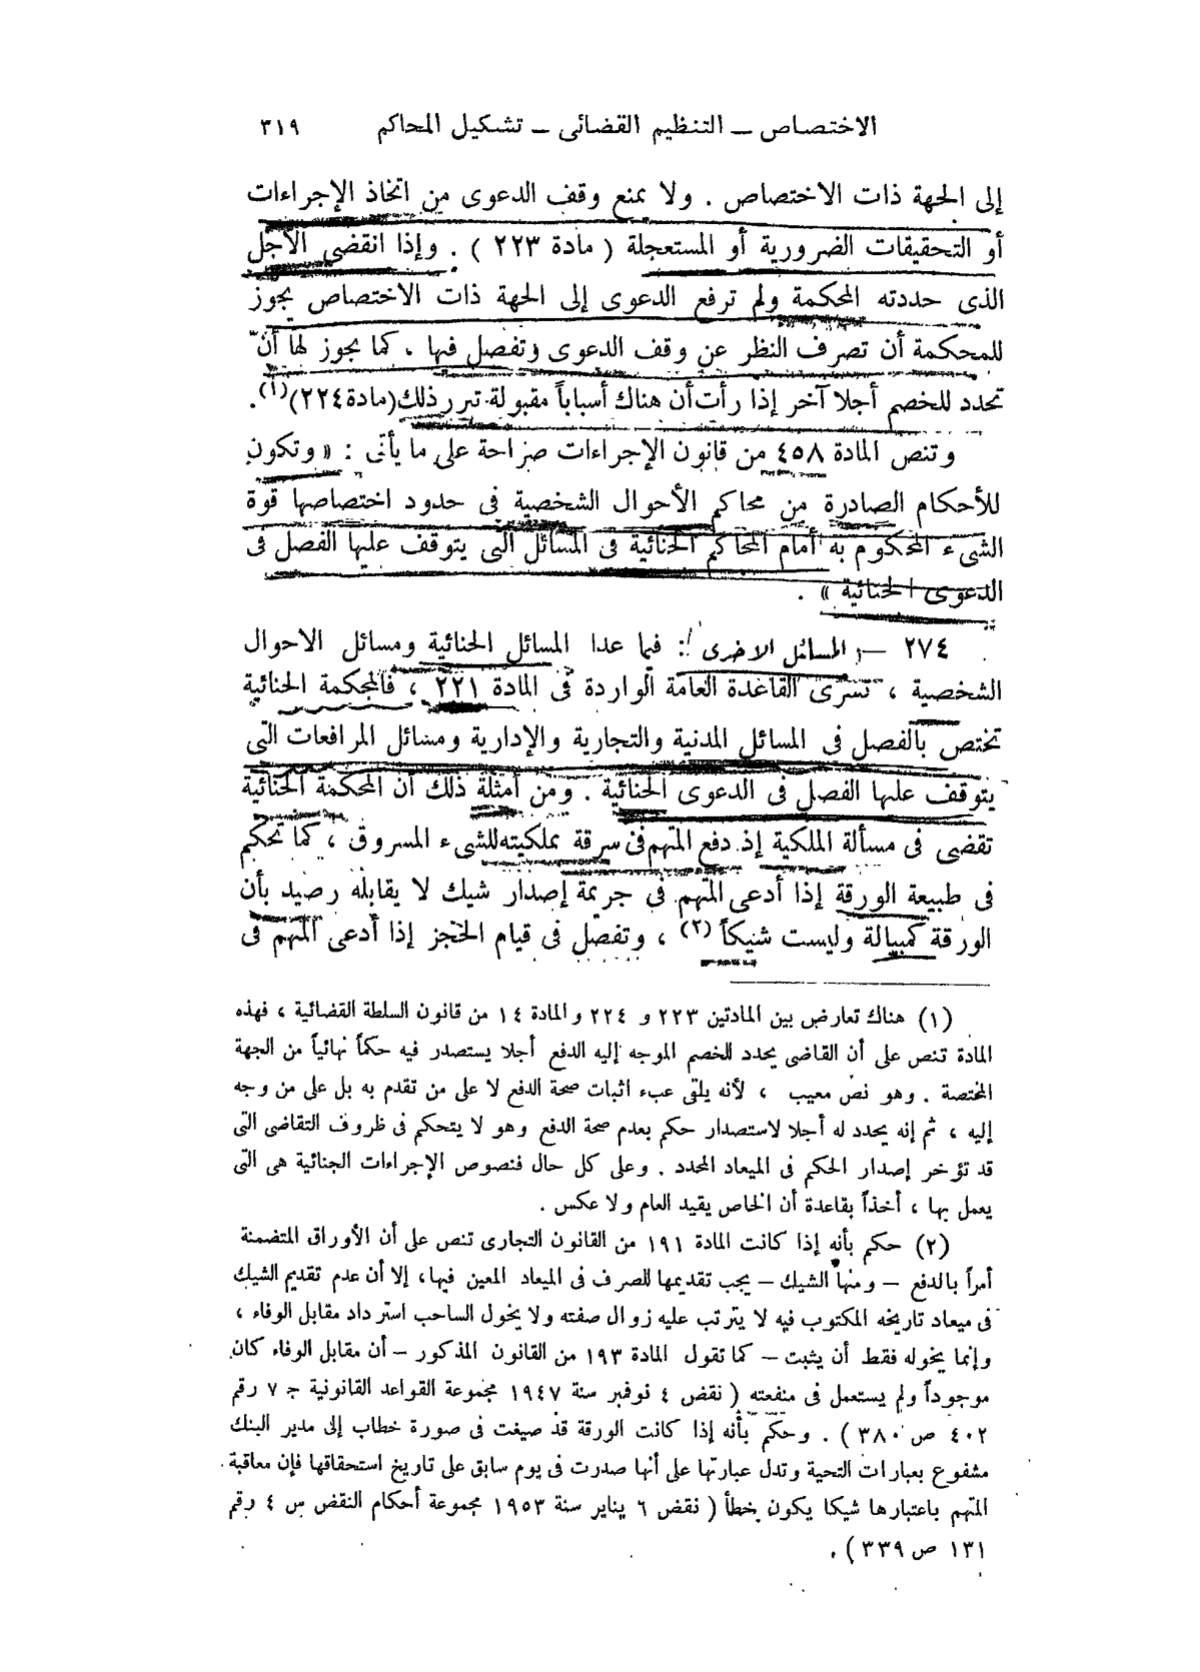 الاختصاص – التنظيم القضائى – تشكيل المحاكم ٣١٩
إلى الجهة ذات الاختصاص . ولا يمنع وقف الدعوى من اتخاذ الإجراءات
أو التحقيقات الضرورية أو المستعجلة ( مادة ٢٢٣ ) . وإذا انقضى الأجل
الذى حددته المحكمة ولم ترفع الدعوى إلى الجهة ذات الاختصاص يجوز
للمحكمة أن تصرف النظر عن وقف الدعوى وتفصل فيها ، كما يجوز لها أن
تحدد للخصم أجلا آخر إذا رأت أن هناك أسباباً مقبولة تبرر ذلك (مادة ٢٢٤)(١).
وتنص المادة ٤٥٨ من قانون الإجراءات صراحة على ما يأتى : « وتكون
للأحكام الصادرة من محاكم الأحوال الشخصية فى حدود اختصاصها قوة
الشىء المحكوم به أمام المحاكم الجنائية فى المسائل التى يتوقف عليها الفصل فى
الدعوى الجنائية » .
٢٧٤ – المسائل الاخرى : فيما عدا المسائل الجنائية ومسائل الاحوال
الشخصية ، تسرى القاعدة العامة الواردة فى المادة ٢٢١ ، فالمحكمة الجنائية
تختص بالفصل فى المسائل المدنية والتجارية والإدارية ومسائل المرافعات التى
يتوقف عليها الفصل فى الدعوى الجنائية . ومن أمثلة ذلك أن المحكمة الجنائية
تقضى فى مسألة الملكية إذ دفع المتهم فى سرقة بملكيته للشىء المسروق ، كما تحكم
فى طبيعة الورقة إذا أدعى المتهم فى جريمة إصدار شيك لا يقابله رصيد بأن
الورقة كمبيالة وليست شيكاً (٢) ، وتفصل فى قيام الحجز إذا أدعى المتهم فى
(١) هناك تعارض بين المادتين ٢٢٣ و ٢٢٤ والمادة ١٤ من قانون السلطة القضائية ، فهذه
المادة تنص على أن القاضى يحدد للخصم الموجه إليه الدفع أجلا يستصدر فيه حكماً نهائياً من الجهة
المختصة . وهو نص معيب ، لأنه يلقى عبء اثبات صحة الدفع لا على من تقدم به بل على من وجه
إليه ، ثم إنه يحدد له أجلا لاستصدار حكم بعدم صحة الدفع وهو لا يتحكم فى ظروف التقاضى التى
قد تؤخر إصدار الحكم فى الميعاد المحدد . وعلى كل حال فنصوص الإجراءات الجنائية هى التى
يعمل بها ، أخذاً بقاعدة أن الخاص يقيد العام ولا عكس .
(٢) حكم بأنه إذا كانت المادة ١٩١ من القانون التجارى تنص على أن الأوراق المتضمنة
أمراً بالدفع – ومنها الشيك – يجب تقديمها للصرف فى الميعاد المعين فيها، إلا أن عدم تقديم الشيك
فى ميعاد تاريخه المكتوب فيه لا يترتب عليه زوال صفته ولا يخول الساحب استرداد مقابل الوفاء ،
وإنما يخوله فقط أن يثبت – كما تقول المادة ١٩٣ من القانون المذكور – أن مقابل الوفاء كان
موجوداً ولم يستعمل فى منفعته ( نقض ٤ نوفمبر سنة ١٩٤٧ مجموعة القواعد القانونية ج ٧ رقم
٤٠٢ ص ٣٨٠ ) . وحكم بأنه إذا كانت الورقة قد صيغت فى صورة خطاب إلى مدير البنك
مشفوع بعبارات التحية وتدل عبارتها على أنها صدرت فى يوم سابق على تاريخ استحقاقها فإن معاقبة
المتهم باعتبارها شيكا يكون خطأ ( نقض ٦ يناير سنة ١٩٥٣ مجموعة أحكام النقض س ٤ رقم
١٣١ ص ٣٣٩ ) .